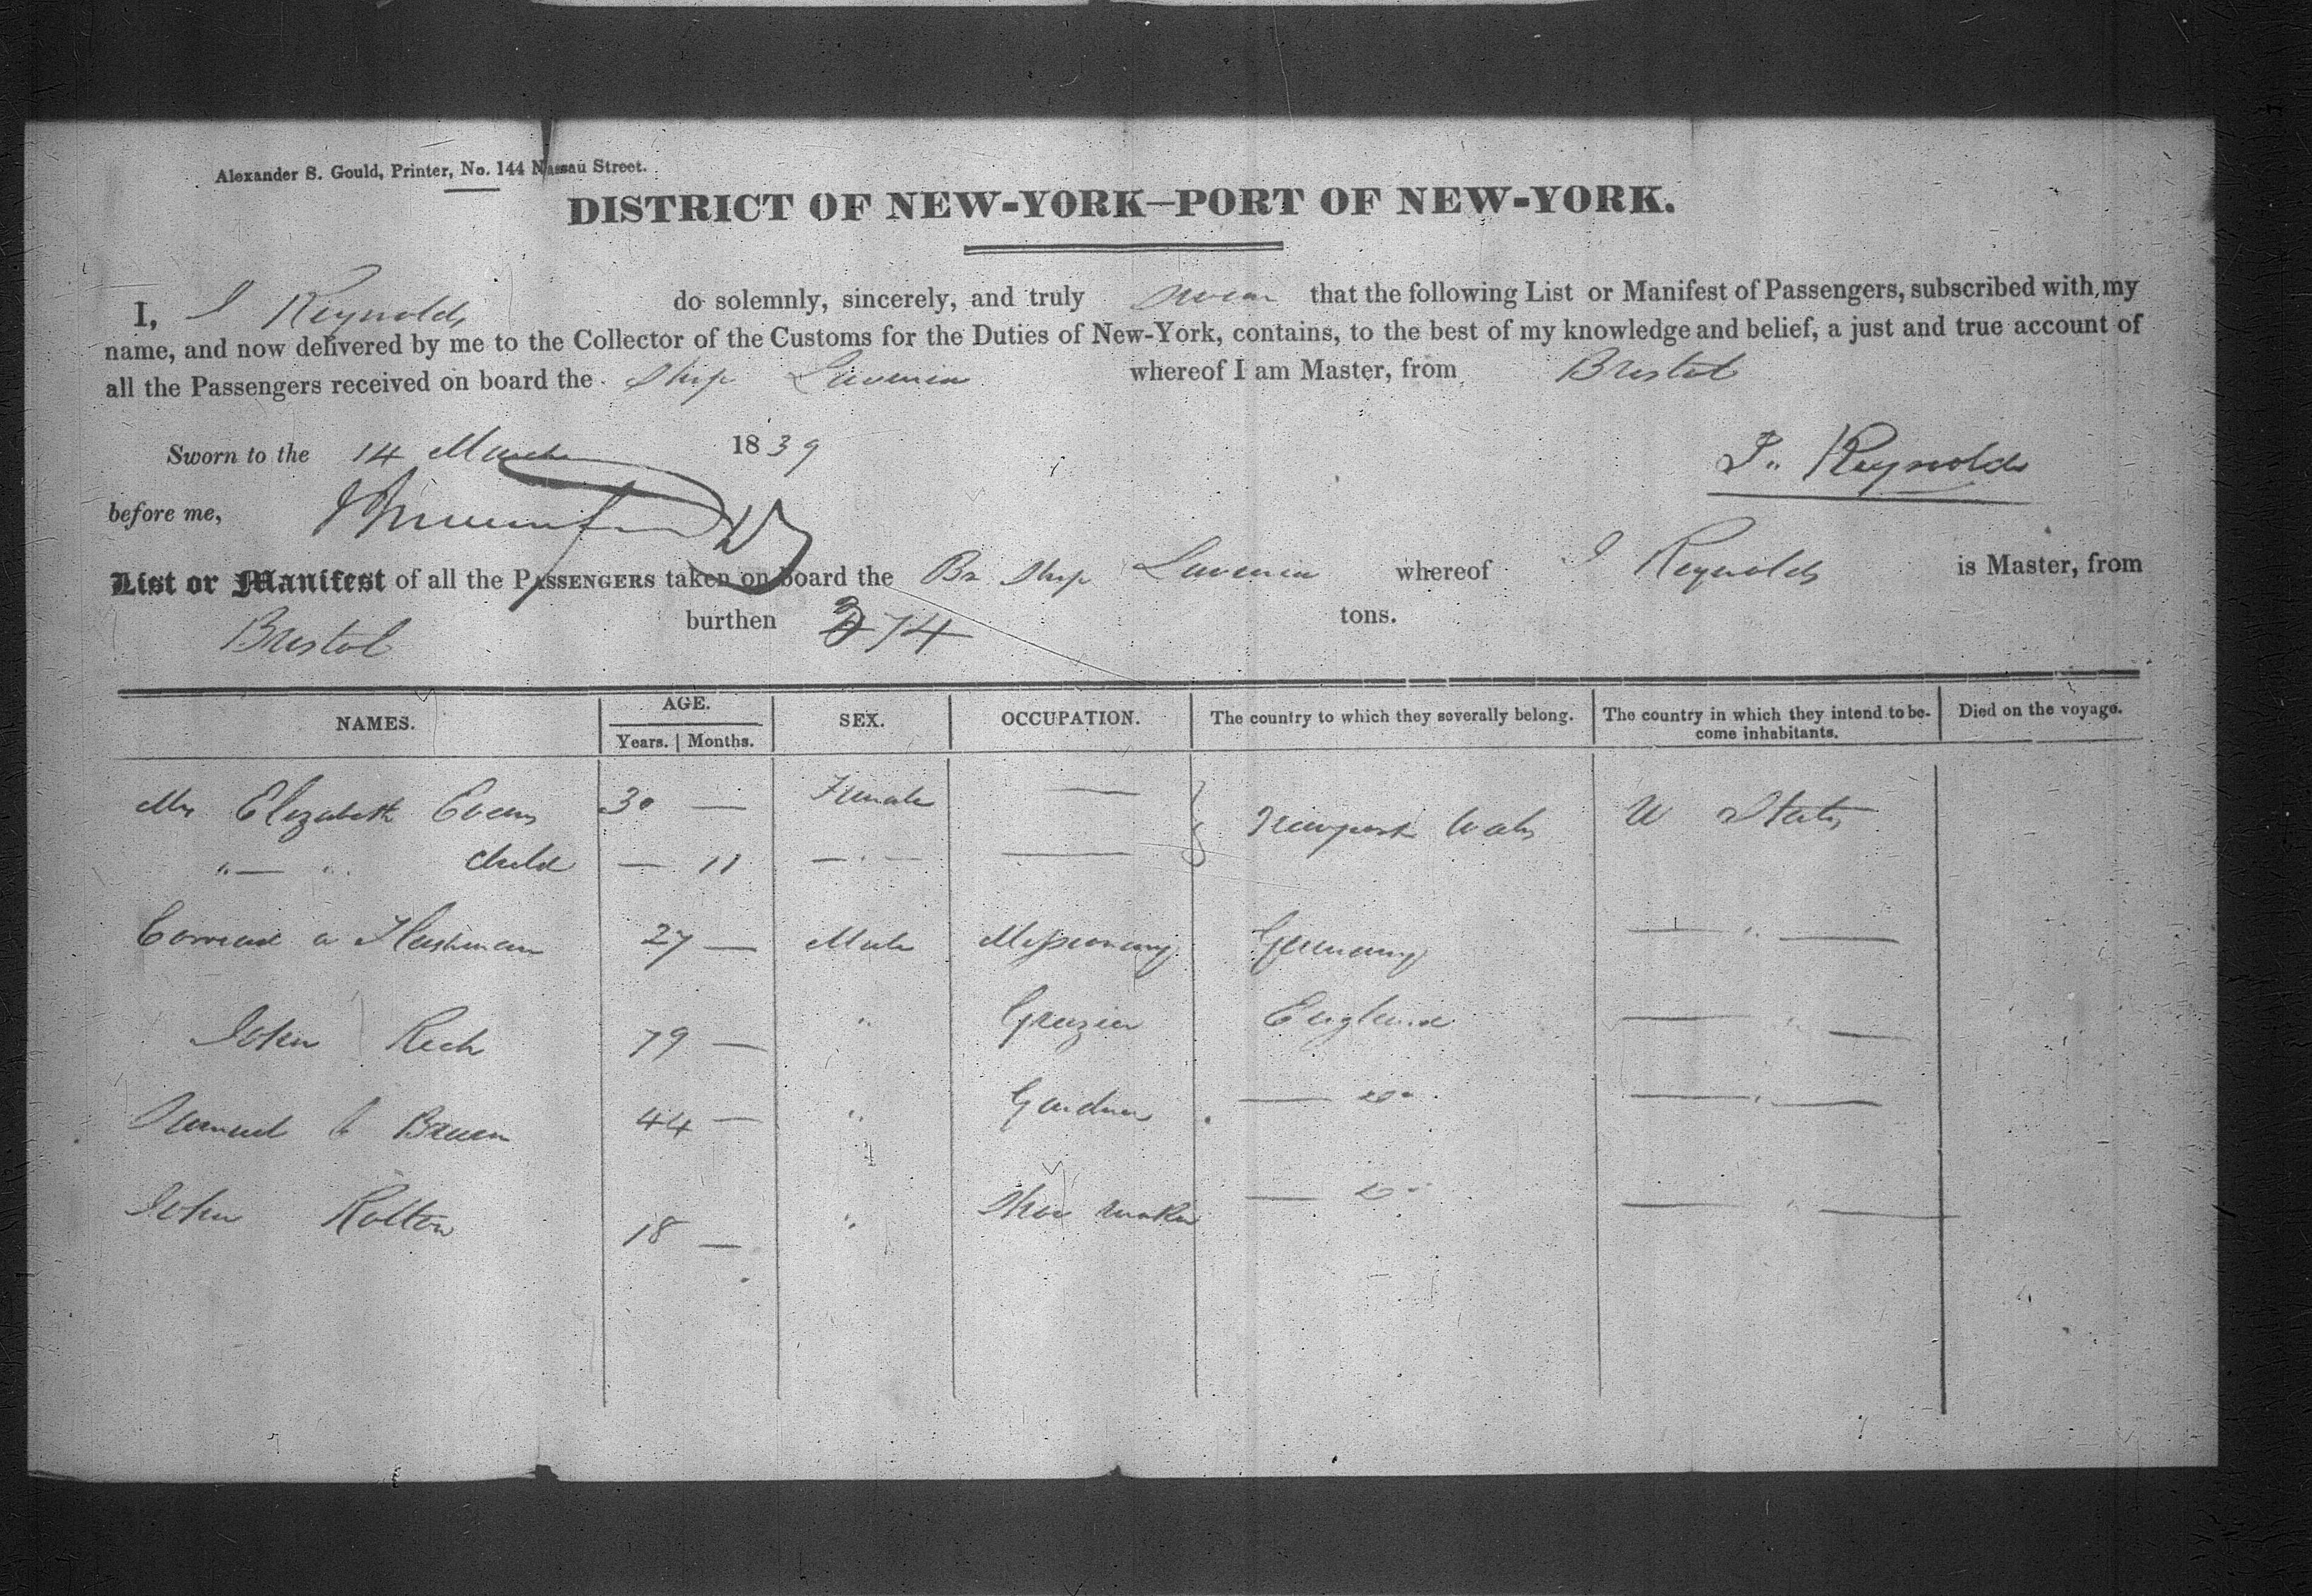 Alexander S. Gould, Printer, No. 144 Nassau Street.
DISTRICT OF NEW-YORK—PORT OF NEW-YORK.
I, J Reynolds do solemnly, sincerely, and truly swear that the following List or Manifest of Passengers, subscribed with my
name, and now delivered by me to the Collector of the Customs for the Duties of New-York, contains, to the best of my knowledge and belief, a just and true account of
all the Passengers received on board the Ship whereof I am Master, from Bristol
Sworn to the 14 March 1839
J. Reynolds
before me,
List or Manifest of all the PASSENGERS taken on board the Br Ship whereof J Reynolds is Master, from
Bristol burthen 374 tons.
NAMES. AGE. SEX. OCCUPATION. The country to which they severally belong. The country in which they intend to be- Died on the voyage.
Years. Months. come inhabitants.
Mrs Elizabeth Evans 30 — Female — Newport Wales U States
" — " child — 11 — " — —
a 27 — Male Missionary Germany — " —
John 79 — " Grazier England — " —
Samuel 44 — " Gardner — Do — " —
John Rolton 18 — " Shoe maker — Do — " —